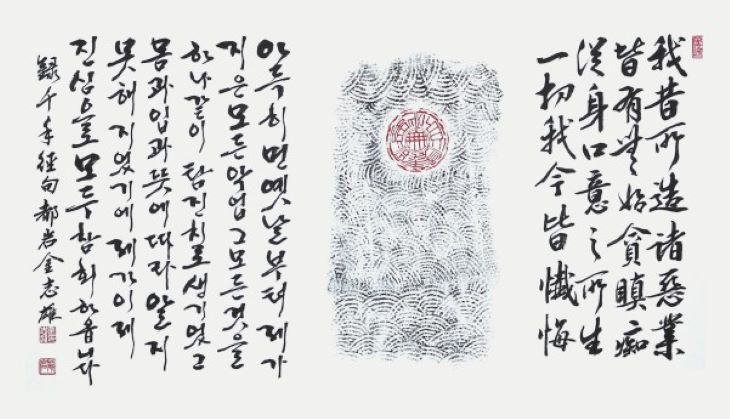 我昔所造諸惡業
皆有無始貪瞋痴
從身口意之所生
一切我今皆懺悔
아득히 먼 옛날부터 제가
지은 모든 악업 그 모든 것을
하나같이 탐진치로 생기었고
몸과 입과 뜻에 따라 알지
못해 지었기에 제가 이제
진심으로 모두 참회하옵니다
錄千手經句 都岩 金志雄